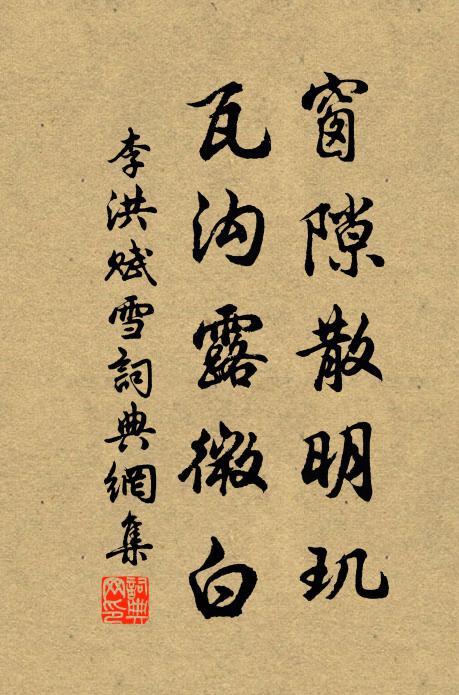 窗隙散明玑
瓦沟露微白
李洪赋雪詞典網集
詞典网印